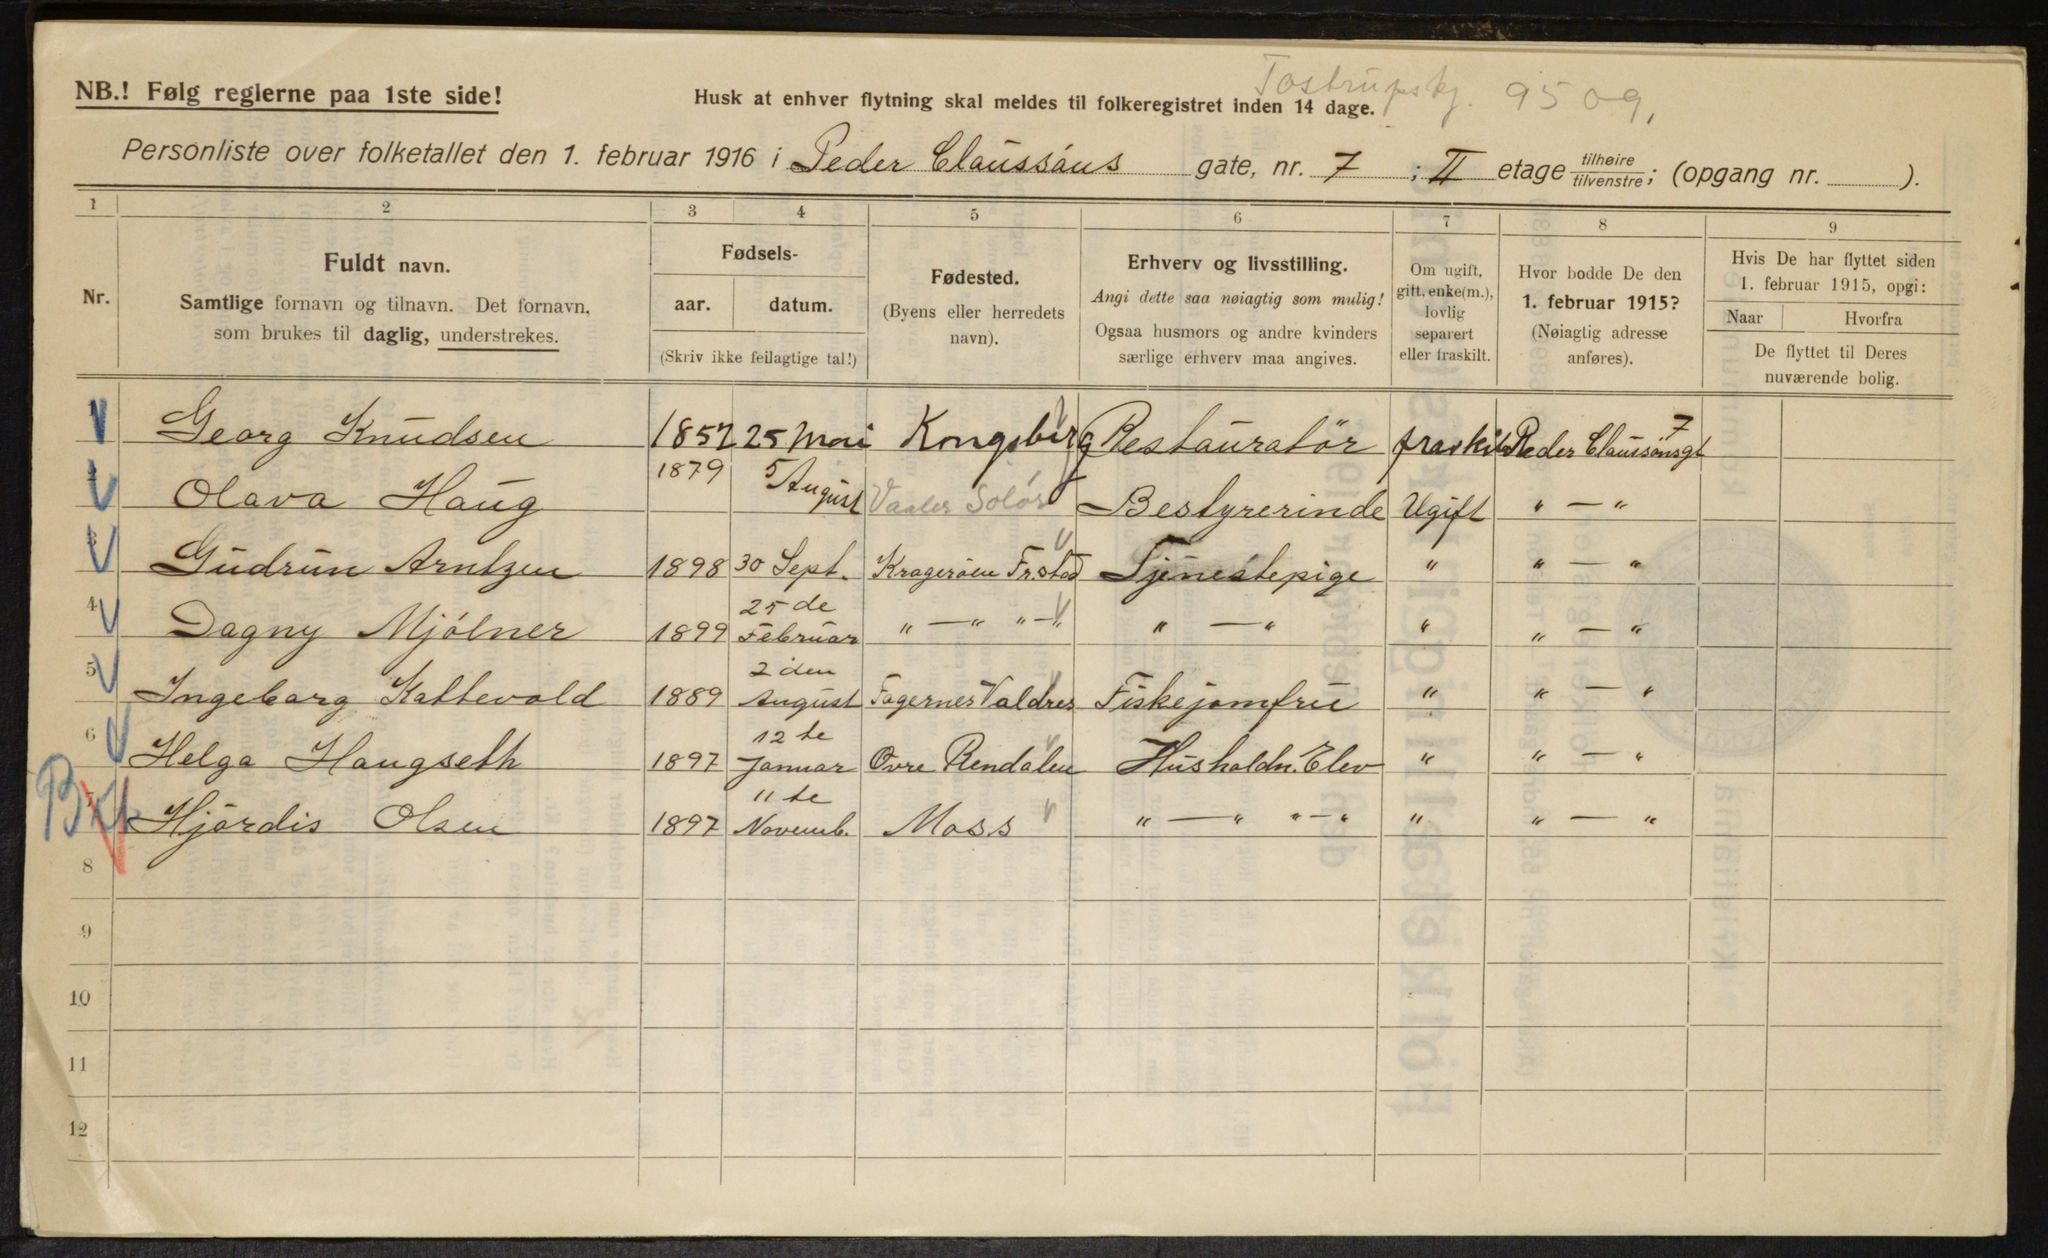 Tostrupskj. 9509,
NB.! Følg reglerne paa 1ste side!
Husk at enhver flytning skal meldes til folkeregistret inden 14 dage.
Personliste over folketallet den 1. februar 1916 i Peder Claussøns gate, nr. 7 ; II etage tilhøire/tilvenstre; (opgang nr. ).
1 2 3 4 5 6 7 8 9
Nr.
Fuldt navn.
Samtlige fornavn og tilnavn. Det fornavn,
som brukes til daglig, understrekes.
Fødsels-
aar. datum.
(Skriv ikke feilagtige tal!)
Fødested.
(Byens eller herredets
navn).
Erhverv og livsstilling.
Angi dette saa nøiagtig som mulig!
Ogsaa husmors og andre kvinders
særlige erhverv maa angives.
Om ugift,
gift, enke(m.),
lovlig
separert
eller fraskilt.
Hvor bodde De den
1. februar 1915?
(Nøiagtig adresse
anføres).
Hvis De har flyttet siden
1. februar 1915, opgi:
Naar Hvorfra
De flyttet til Deres
nuværende bolig.
Georg Knudsen 1857 25 Mai Kongsberg Restauratör fraskilt Peder Claussönsgt 7
Olava Haug 1879 5 August Vaaler Solør Bestyrerinde Ugift " — "
Gudrun Arntzen 1898 30 Sept. Kragerøen Fr.stad Tjenestepige " " — "
4 Dagny Mjölner 1899 25 de Februar " — " " — " " — " " " — "
5 Ingeborg Kattevold 1889 2 den August Fagernes Valdres Fiskejomfru " " — "
6 Helga Haugseth 1897 12 te Januar Øvre Rendalen Husholdn. Elev " " — "
7 Hjördis Olsen 1897 11 te Novemb. Moss " — " " — " " " — "
8
9
10
11
12